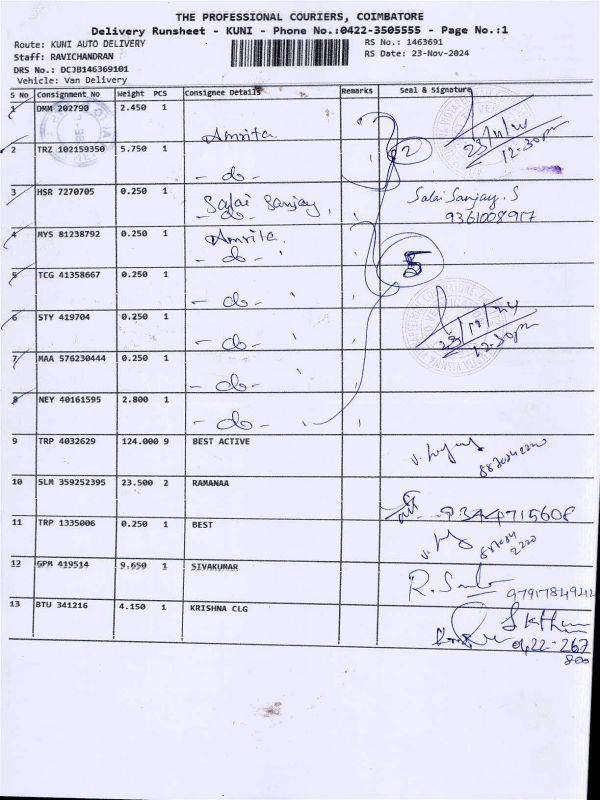 THE PROFESSIONAL COURIERS, COIMBATORE
Delivery Runsheet - KUNI - Phone No.:0422-3505555 - Page No.:1
Route: KUNI AUTO DELIVERY
RS No.: 1463691
Staff: RAVICHANDRAN
RS Date: 23-Nov-2024
DRS No.: DCJB146369101
Vehicle: Van Delivery
S No Consignment No Weight PCS Consignee Details Remarks Seal & Signature
1 DMM 202790 2.450 1 Amrita
23/11/24
12.30pm
2 TRZ 102159350 5.750 1 - do - 2
3 HSR 7270705 0.250 1 Salai Sanjay, Salai Sanjay. S
- do - 9361008917
4 MYS 81238792 0.250 1 Amrita.
- do - 5
5 TCG 41358667 0.250 1 - do -
6 STY 419704 0.250 1 - do -
12.30pm
7 MAA 576230444 0.250 1 - do -
8 NEY 40161595 2.800 1 - do -
9 TRP 4032629 124.000 9 BEST ACTIVE
10 SLM 359252395 23.500 2 RAMANAA 9344715608
11 TRP 1335006 0.250 1 BEST
12 GPM 419514 9.650 1 SIVAKUMAR
13 BTU 341216 4.150 1 KRISHNA CLG
0422-267
800